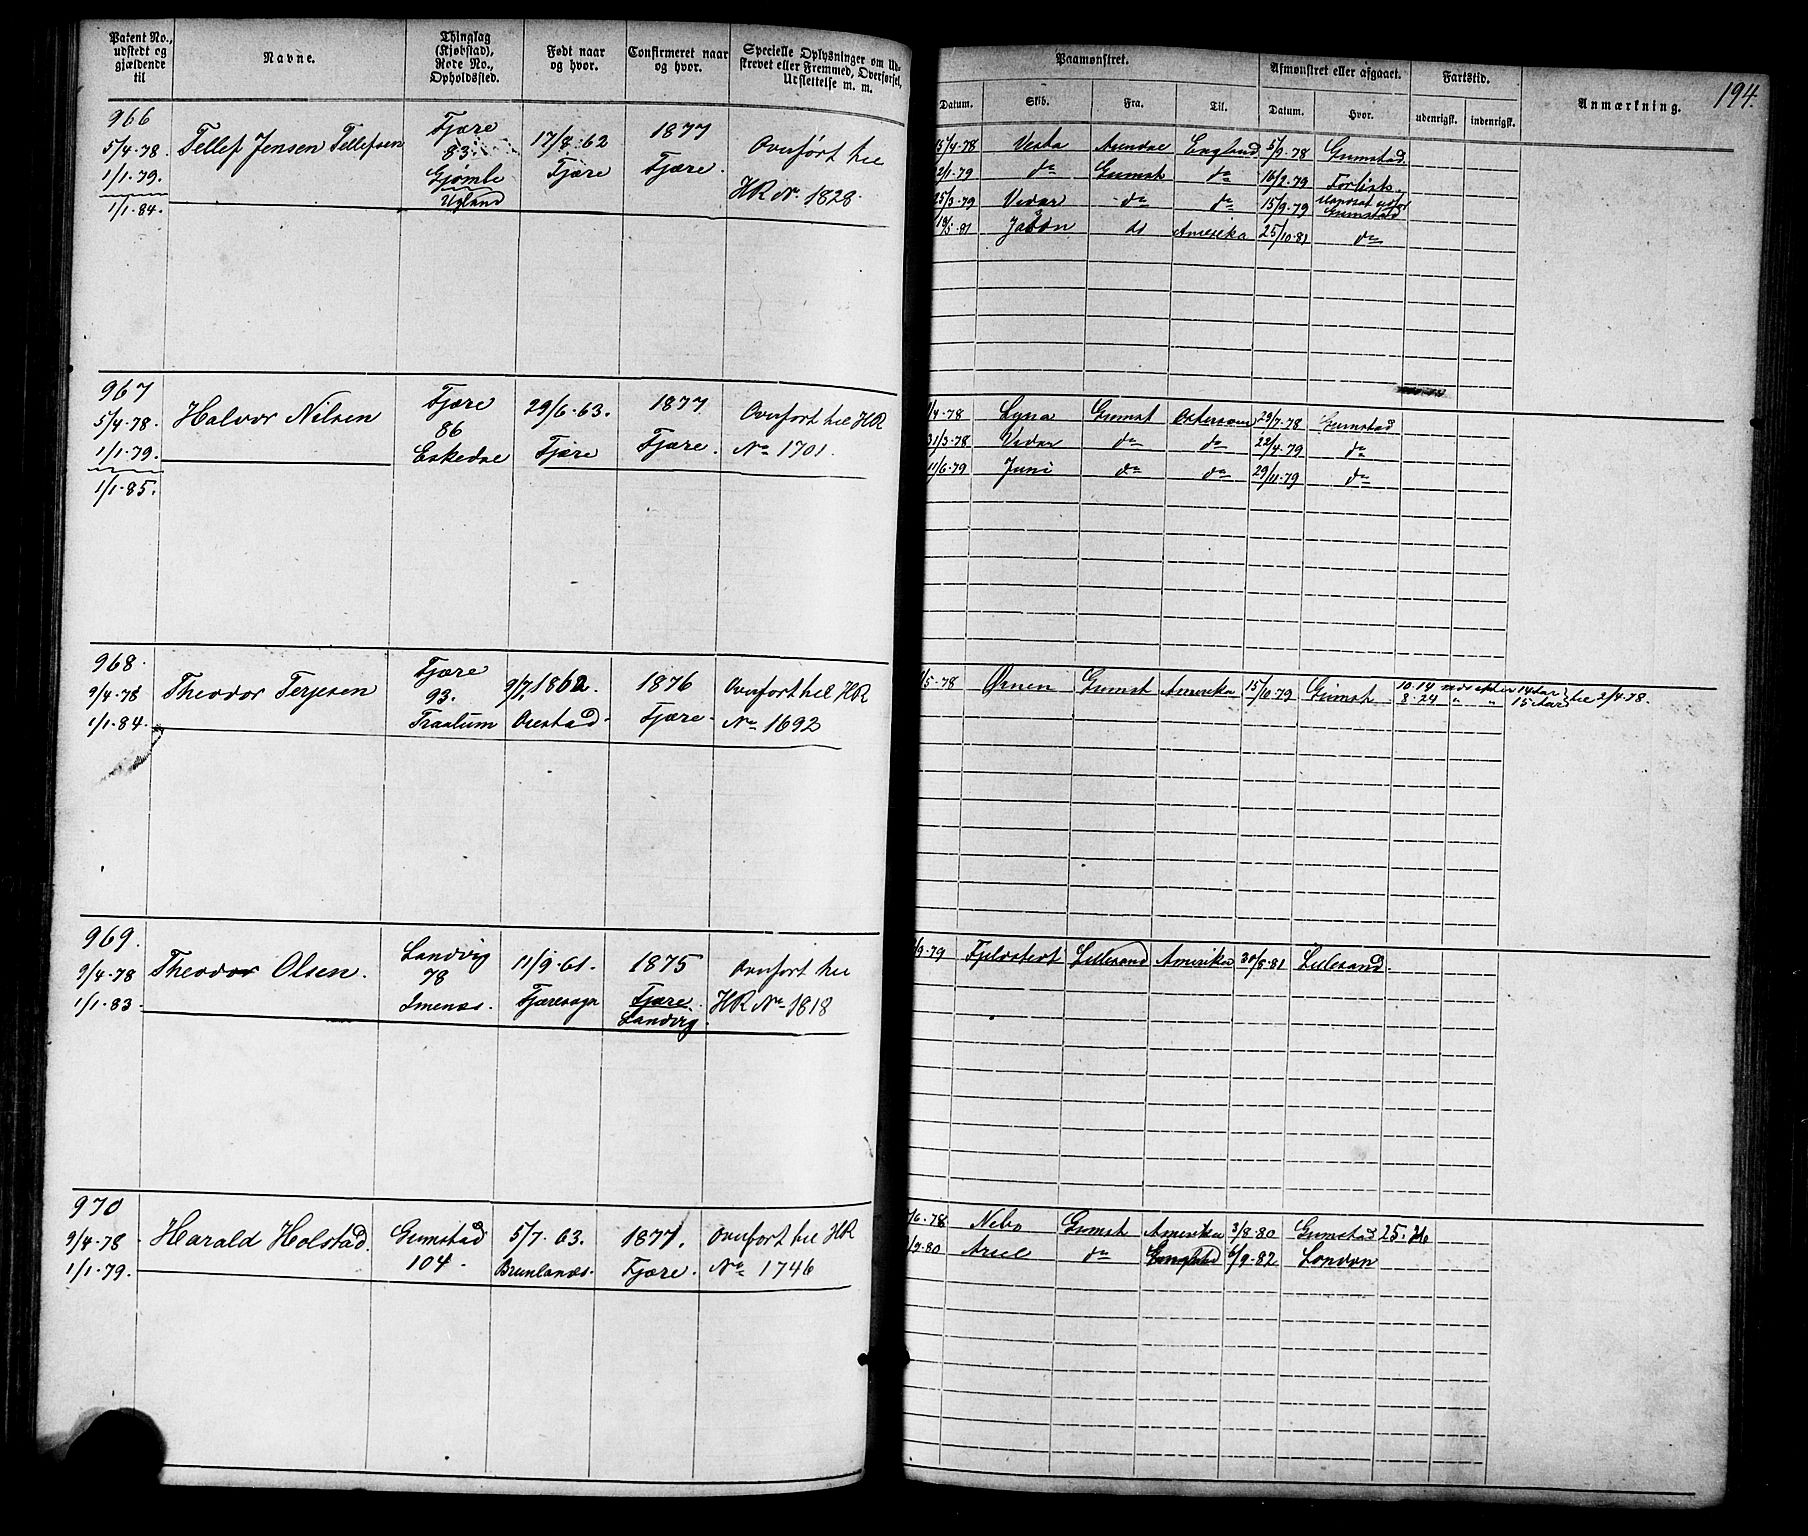 Patent No., udstedt og gjældende til
Navne.
Thinglag (Kjøbstad), Rode No., Opholdssted.
Født naar og hvor.
Confirmeret naar og hvor.
Specielle Oplysninger om Udskrevet eller Fremmed, Overførsel, Udslettelse m. m.
Paamønstret.
Datum.
Skib.
Fra.
Til.
Afmønstret eller afgaaet.
Datum.
Hvor.
Fartstid.
udenrigsk.
indenrigsk.
Anmærkning.
194.
966
5/4-78.
1/1-79.
1/1-84.
Tellef Jensen Tellefsen
Fjære
83.
Gjømle
Ugland
17/8-62
Fjære
1877
Fjære.
Overført til
HR No. 1828.
15/4-78 Vesta Arendal England 5/9-78 Grimstad
2/1-79 do Grimst do 16/2-79 Forlist
25/3-79 Vedar do do 15/9-79 Grimstad
19/5-81 Jason do Amerika 25/10-81 do
967
5/4-78.
1/1-79.
1/1-85.
Halvor Nilsen
Fjære
86
Eskedal
29/6-63.
Fjære
1877
Fjære.
Overført til HR
No 1701.
/4-78 Lyna Grimst Østersøen 29/7-78 Grimstad
31/3-78 Vedar do do 22/4-79 do
11/6-79 Juni do do 29/11-79 do
968.
9/4-78
1/1-84.
Theodor Terjesen
Fjære
93.
Traalum
9/7 1862.
Øiestad.
1876
Fjære.
Overført til HR
No 1692
/5-78 Ørnen Grimst Amerika 15/10-79 Grimst 10.14 mds efter 14 Aar
8.24 " " 15 Aar til 2/4-78.
969.
9/4-78
1/1-83.
Theodor Olsen.
Landvig
78
Imenæs.
11/9-61.
Fjæresogn
1875
Fjære.
Landvig
Overført til
HR No 1818
/9-79 Fjeldstedt Lillesand Amerika 30/8-81 Lillesand.
970
9/4-78
1/1-79.
Harald Holstad.
Grimstad
104.
5/7-63.
Brunlanæs.
1877.
Fjære.
Overført til HR
No 1746
/6-78 Nebo Grimst Amerika 3/8-80 Grimstad 25.26
/9-80 Ariel do England 6/9-82 London